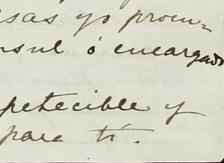 sas yo procu=
nsul ó encargado
petecible y
para tí.